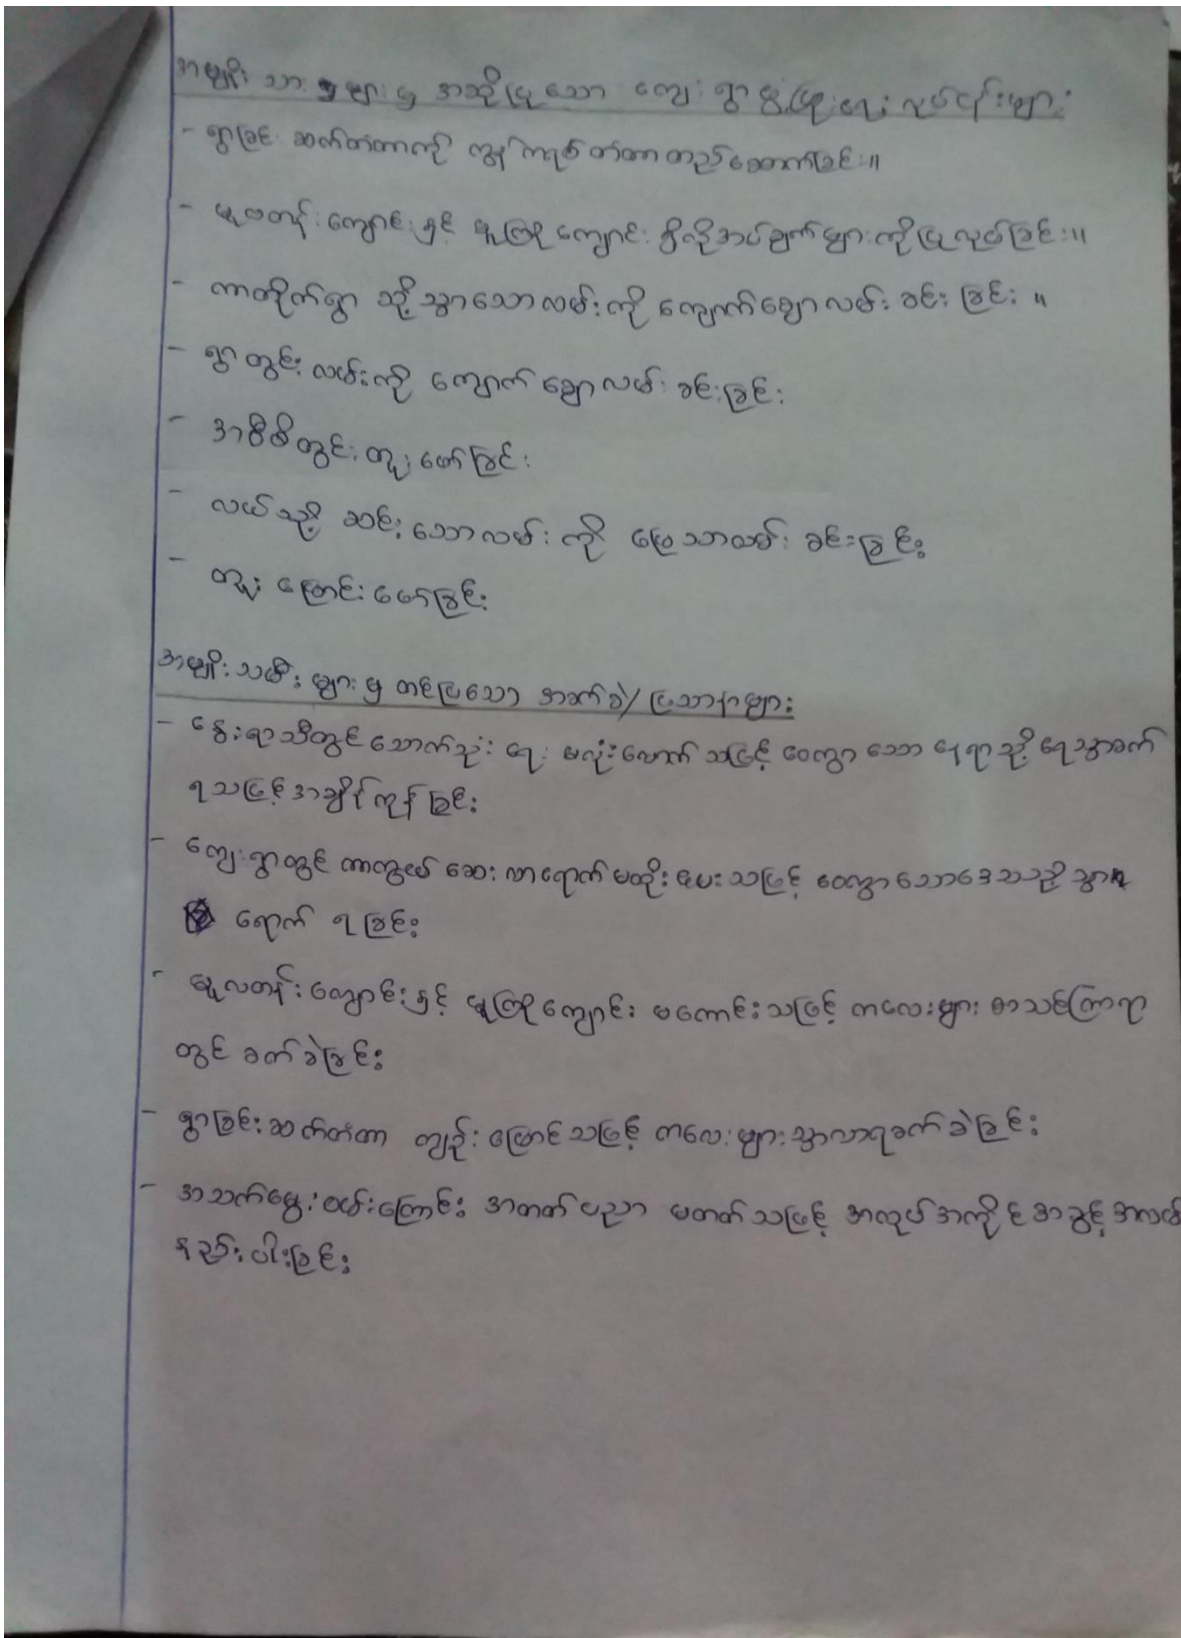 အမျိုးသားများမှ အဆိုပြုသော ကျေးရွာဖွံ့ဖြိုးရေး လုပ်ငန်းများ
- ရွာခြင်း ဆက်တံတာကို ကွန်ကရစ်တံတာ တည်ဆောက်ခြင်း။
- မူလတန်းကျောင်းနှင့် မူကြိုကျောင်း ရှိလိုအပ်ချက်များကို ပြုလုပ်ခြင်း။
- ကာတိုက်ရွာ သို့သွာသောလမ်းကို ကျောက်ချောလမ်း ခင်းခြင်း ။
- ရွာတွင်း လမ်းကို ကျောက်ချောလမ်း ခင်းခြင်း
- အဝီစိတွင်း တူးဖော်ခြင်း
- လယ်သို့ ဆင်းသောလမ်းကို မြေသာလမ်း ခင်းခြင်း
- တူးမြောင်းဖော်ခြင်း
အမျိုးသမီးများမှ တင်ပြသော အခက်ခဲ/ပြဿနာများ
- နွေးရာသီတွင် သောက်သုံးရေ မလုံးလောက်သဖြင့် ဝေလွာသော နေရာသို့ ရေသွာခက်
ရသဖြင့် အချိန်ကုန်ခြင်း
- ကျေးရွာတွင် ကာကွယ်ဆေး လာရောက်မထိုးပေးသဖြင့် ဝေလွာသောဒေသသို့ သွာ
ရောက် ရခြင်း
- မူလတန်းကျောင်းနှင့် မူကြိုကျောင်း မကောင်းသဖြင့် ကလေးများ စာသင်ကြာရာ
တွင် ခက်ခဲခြင်း
- ရွာခြင်းဆက်တံတာ ကျဉ်းမြောင်သဖြင့် ကလေးများသွာလာရခက်ခဲခြင်း
- အသက်မွေးဝမ်းကြောင်း အတတ်ပညာ မတတ်သဖြင့် အလုပ်အကိုင် အခွင့်အလမ်
နည်းပါးခြင်း